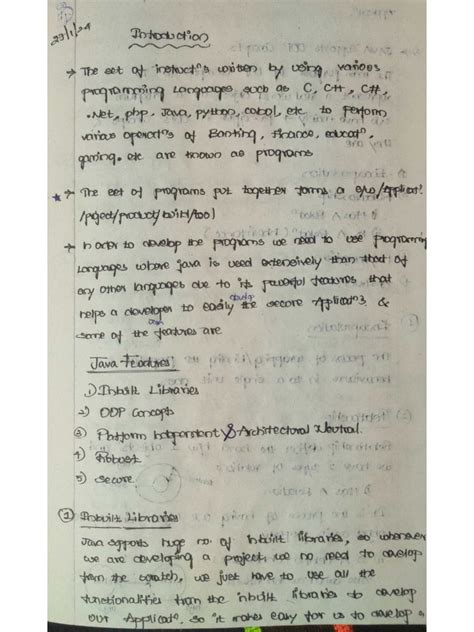 23/1/24
Introduction
→ The set of instructⁿs written by using various
programming languages such as C, C++, C#,
.Net, php, Java, python, cobol, etc to perform
various operatⁿs of Banking, Finance, educatⁿ,
gaming. etc are known as programs
★→ The set of programs put together forms a s/w/Applicatⁿ
/project/product/build/tool
→ In order to develop the programs we need to use programming
languages where java is used extensively than that of
any other languages due to its powerful features that
develop
helps a developer to easily the secure Applicatⁿs &
some of the features are
Java Features:
1) Inbuilt Libraries
2) OOP Concepts
3) Platform Independent & Architectural Neutral.
4) Robust
5) secure.
① Inbuilt Libraries
Java supports huge no. of inbuilt libraries, so whenever
we are developing a project, we no need to develop
from the scratch, we just have to use all the
functionalities from the inbuilt libraries to develop
our Applicatⁿ, so it makes easy for us to develop a